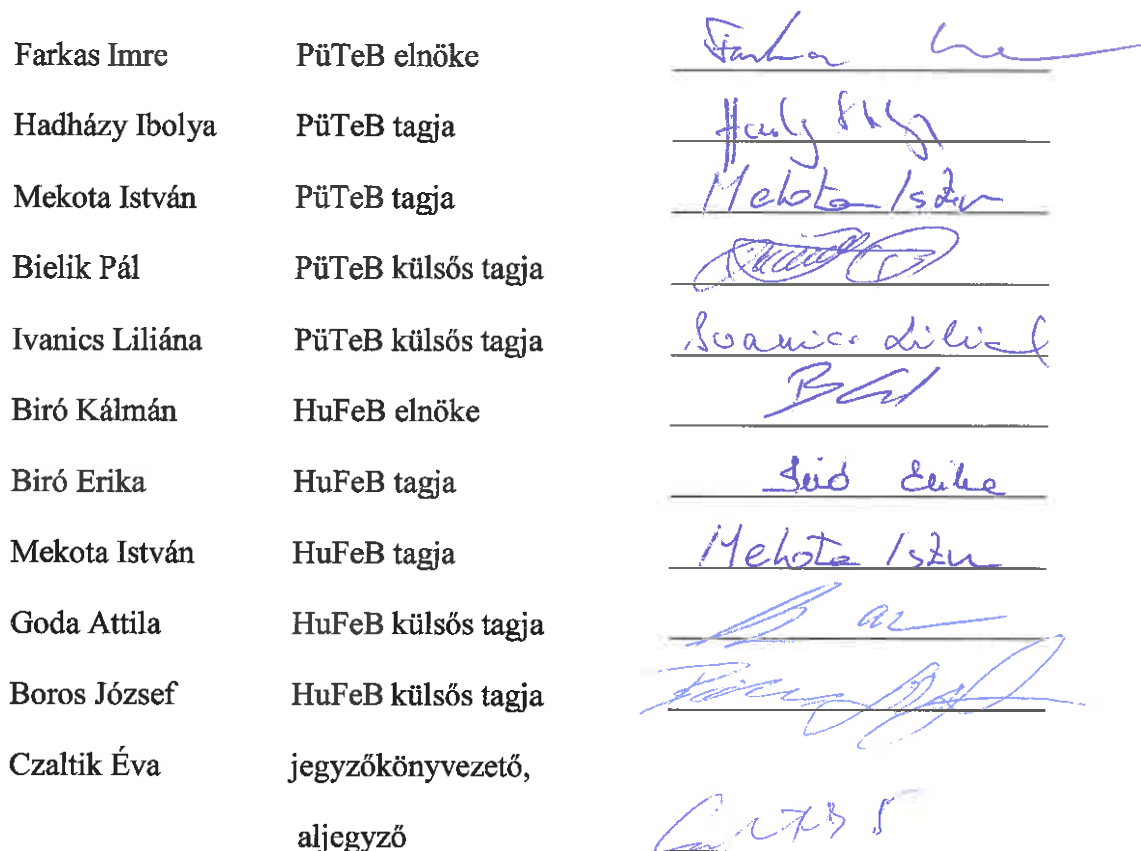 Farkas Imre PüTeB elnöke Farkas
Hadházy Ibolya PüTeB tagja
Mekota István PüTeB tagja Mekota István
Bielik Pál PüTeB külsős tagja
Ivanics Liliána PüTeB külsős tagja Ivanics
Biró Kálmán HuFeB elnöke
Biró Erika HuFeB tagja Biró Erika
Mekota István HuFeB tagja Mekota István
Goda Attila HuFeB külsős tagja
Boros József HuFeB külsős tagja
Czaltik Éva jegyzőkönyvezető,
aljegyző